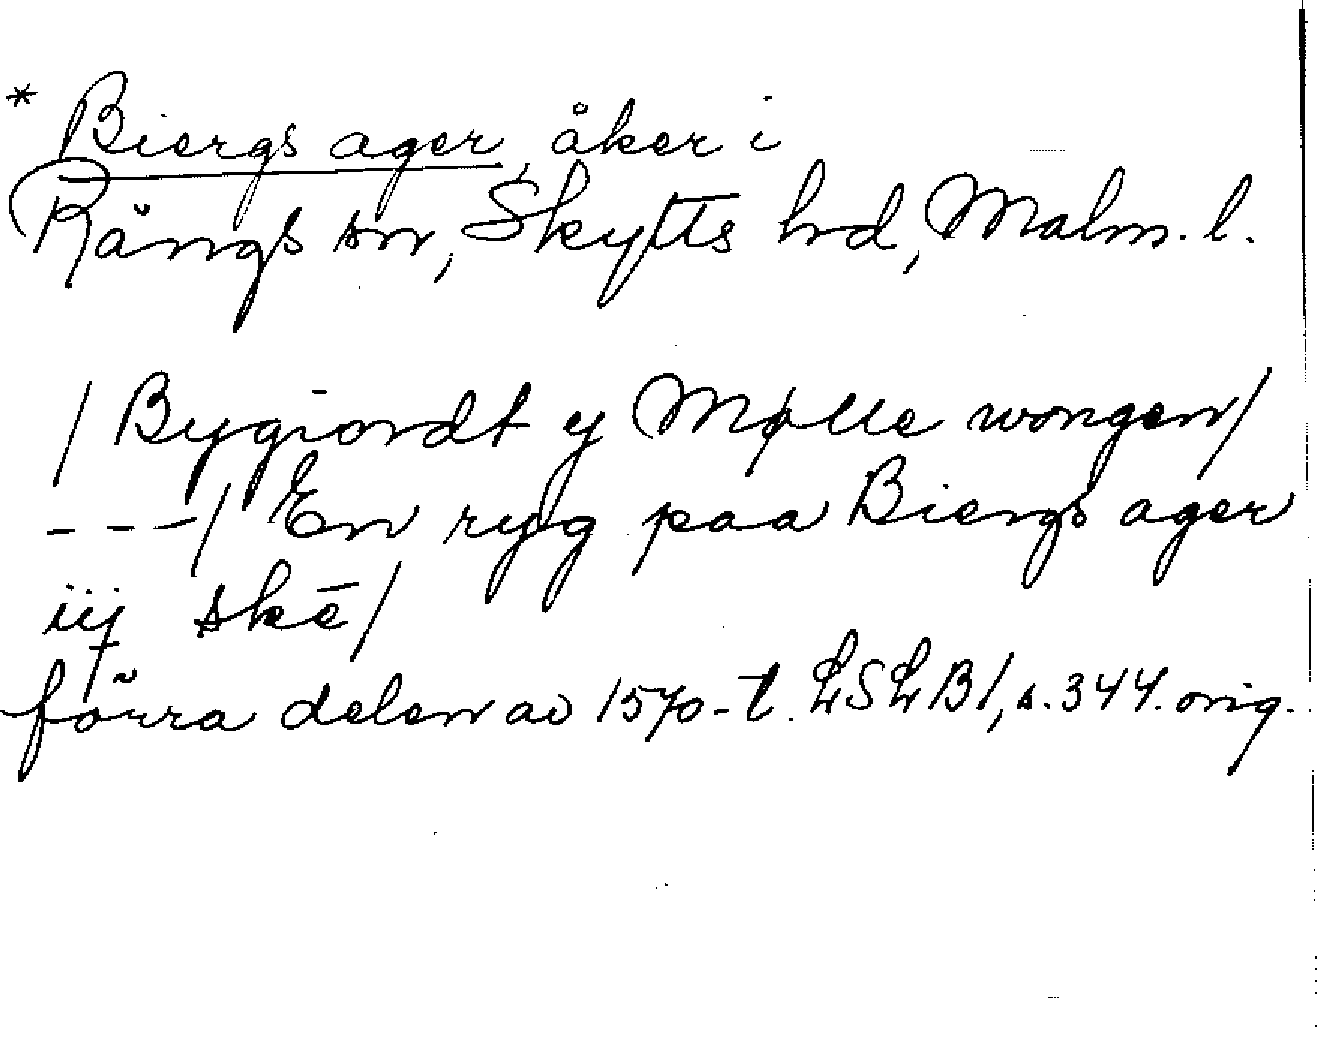 * Biergs ager, åker i
Rängs sn, Skytts hd, Malm. l.
/ Bygiordt y Mølle wongen/
---/ En ryg paa Biergs ager
iij skē/
förra delen av 1570-t. LSLB1, s. 344. orig.